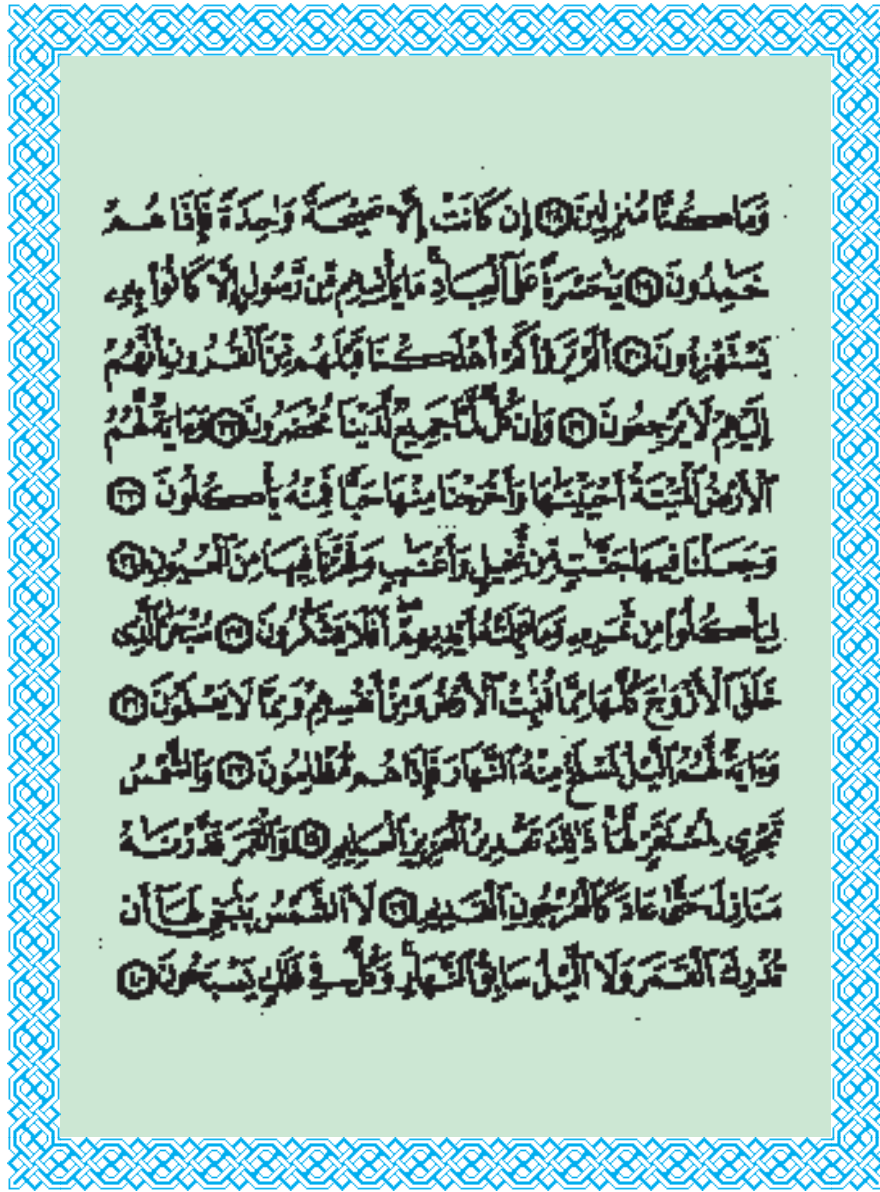 وَمَا كُنَّا مُنزِلِينَ ﴿٢٨﴾ إِن كَانَتْ إِلَّا صَيْحَةً وَٰحِدَةً فَإِذَا هُمْ
خَٰمِدُونَ ﴿٢٩﴾ يَٰحَسْرَةً عَلَى ٱلْعِبَادِ ۚ مَا يَأْتِيهِم مِّن رَّسُولٍ إِلَّا كَانُوا۟ بِهِۦ
يَسْتَهْزِءُونَ ﴿٣٠﴾ أَلَمْ يَرَوْا۟ كَمْ أَهْلَكْنَا قَبْلَهُم مِّنَ ٱلْقُرُونِ أَنَّهُمْ
إِلَيْهِمْ لَا يَرْجِعُونَ ﴿٣١﴾ وَإِن كُلٌّ لَّمَّا جَمِيعٌ لَّدَيْنَا مُحْضَرُونَ ﴿٣٢﴾ وَءَايَةٌ لَّهُمُ
ٱلْأَرْضُ ٱلْمَيْتَةُ أَحْيَيْنَٰهَا وَأَخْرَجْنَا مِنْهَا حَبًّا فَمِنْهُ يَأْكُلُونَ ﴿٣٣﴾
وَجَعَلْنَا فِيهَا جَنَّٰتٍ مِّن نَّخِيلٍ وَأَعْنَٰبٍ وَفَجَّرْنَا فِيهَا مِنَ ٱلْعُيُونِ ﴿٣٤﴾
لِيَأْكُلُوا۟ مِن ثَمَرِهِۦ وَمَا عَمِلَتْهُ أَيْدِيهِمْ ۖ أَفَلَا يَشْكُرُونَ ﴿٣٥﴾ سُبْحَٰنَ ٱلَّذِى
خَلَقَ ٱلْأَزْوَٰجَ كُلَّهَا مِمَّا تُنۢبِتُ ٱلْأَرْضُ وَمِنْ أَنفُسِهِمْ وَمِمَّا لَا يَعْلَمُونَ ﴿٣٦﴾
وَءَايَةٌ لَّهُمُ ٱلَّيْلُ نَسْلَخُ مِنْهُ ٱلنَّهَارَ فَإِذَا هُم مُّظْلِمُونَ ﴿٣٧﴾ وَٱلشَّمْسُ
تَجْرِى لِمُسْتَقَرٍّ لَّهَا ۚ ذَٰلِكَ تَقْدِيرُ ٱلْعَزِيزِ ٱلْعَلِيمِ ﴿٣٨﴾ وَٱلْقَمَرَ قَدَّرْنَٰهُ
مَنَازِلَ حَتَّىٰ عَادَ كَٱلْعُرْجُونِ ٱلْقَدِيمِ ﴿٣٩﴾ لَا ٱلشَّمْسُ يَنۢبَغِى لَهَآ أَن
تُدْرِكَ ٱلْقَمَرَ وَلَا ٱلَّيْلُ سَابِقُ ٱلنَّهَارِ ۚ وَكُلٌّ فِى فَلَكٍ يَسْبَحُونَ ﴿٤٠﴾